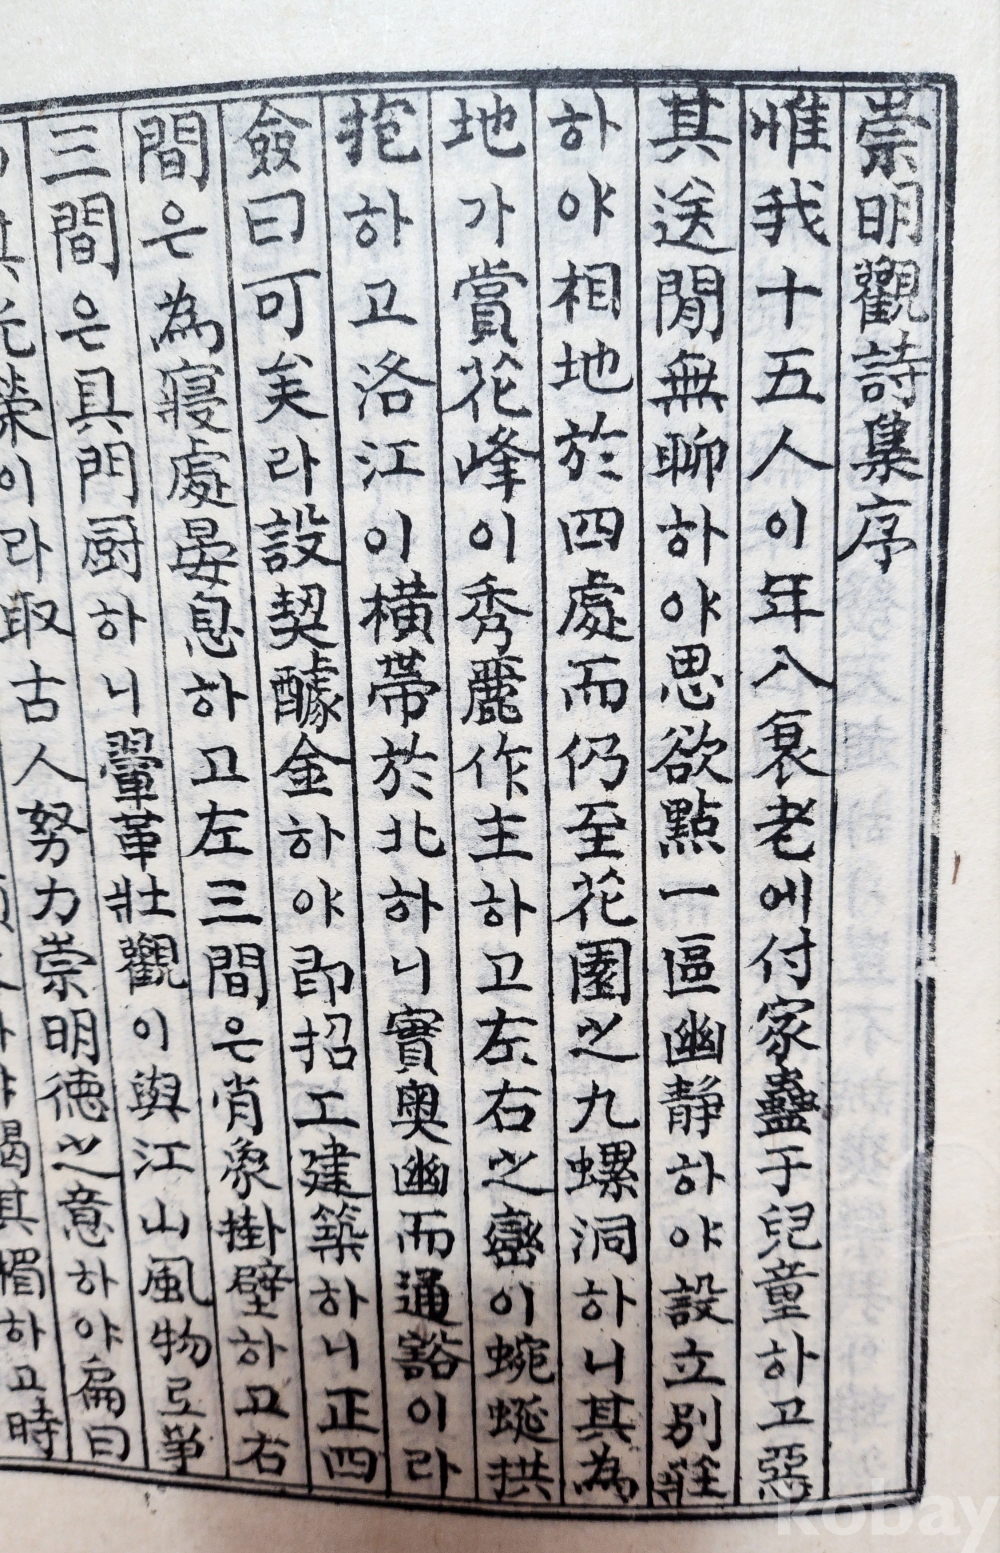 崇明觀詩集序
惟我十五人이年入衰老에付家蠱于兒童하고惡
其送閒無聊하야思欲點一區幽静하야設立別莊
하야相地於四處而仍至花園之九螺洞하니其為
地가賞花峰이秀麗作主하고左右之巒이蜿蜒拱
抱하고洛江이橫帶於北하니實奥幽而通豁이라
僉曰可矣라設契醵金하야即招工建築하니正四
間은為寢處晏息하고左三間은肖象掛壁하고右
三間은具門厨하니翬革壯觀이與江山風物로爭
榮이라取古人努力崇明徳之意하야扁曰
하고時
kobay